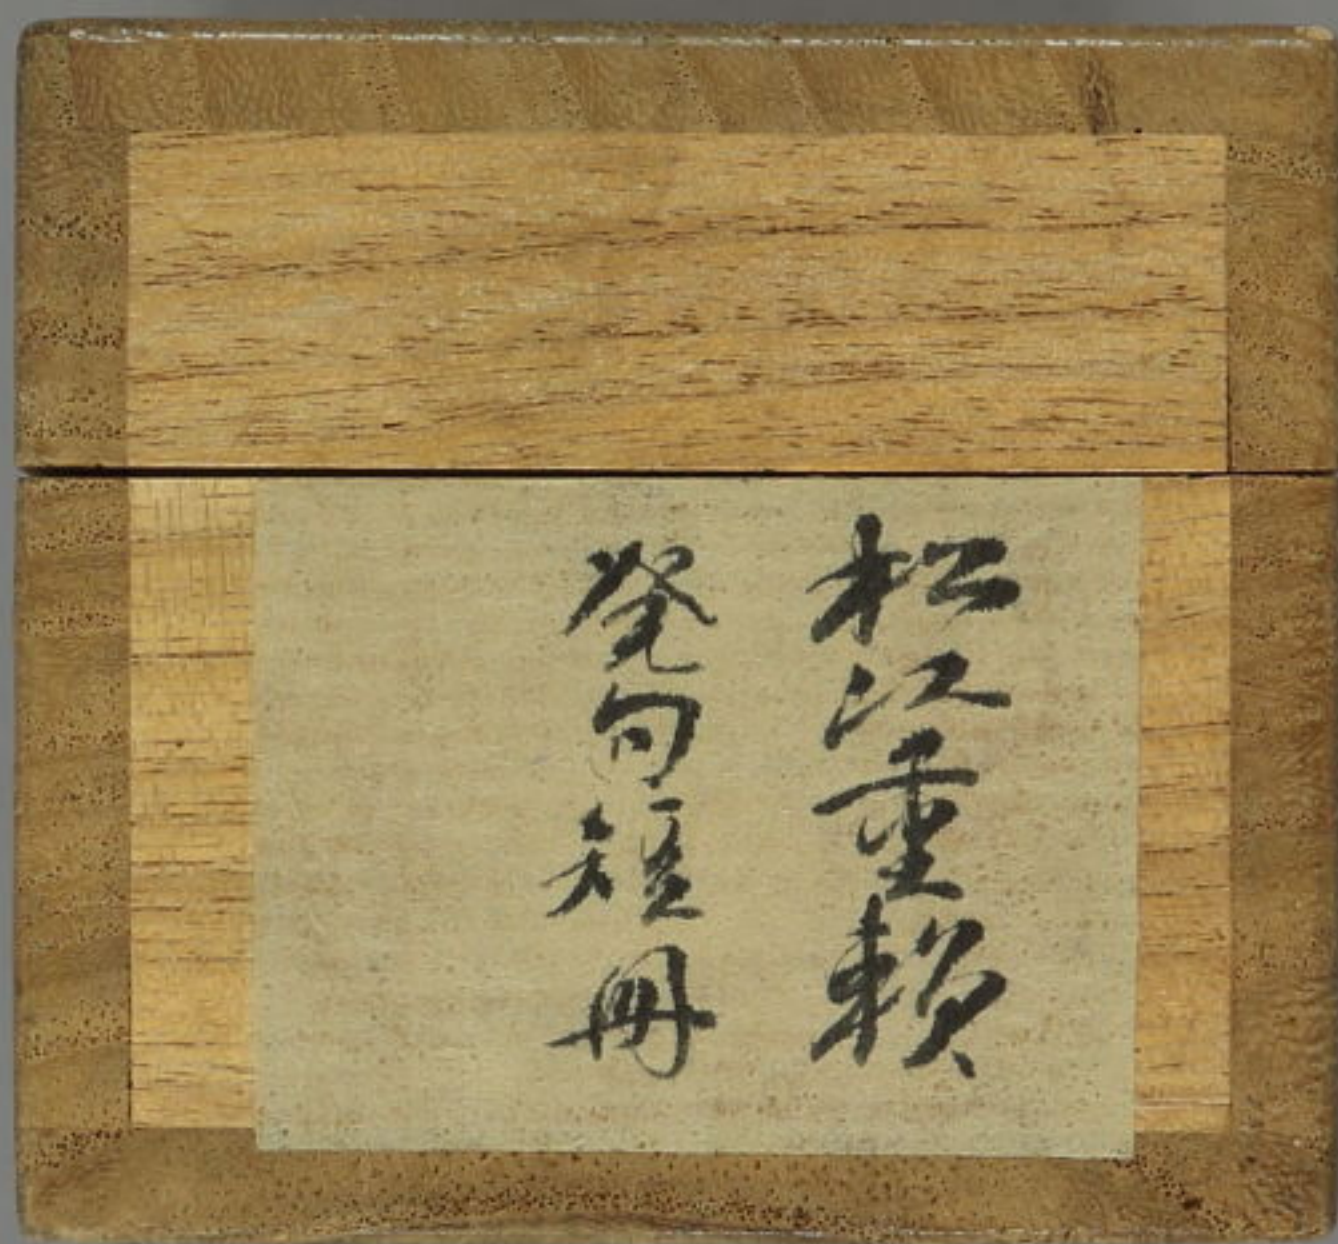 松江重頼
発句短冊